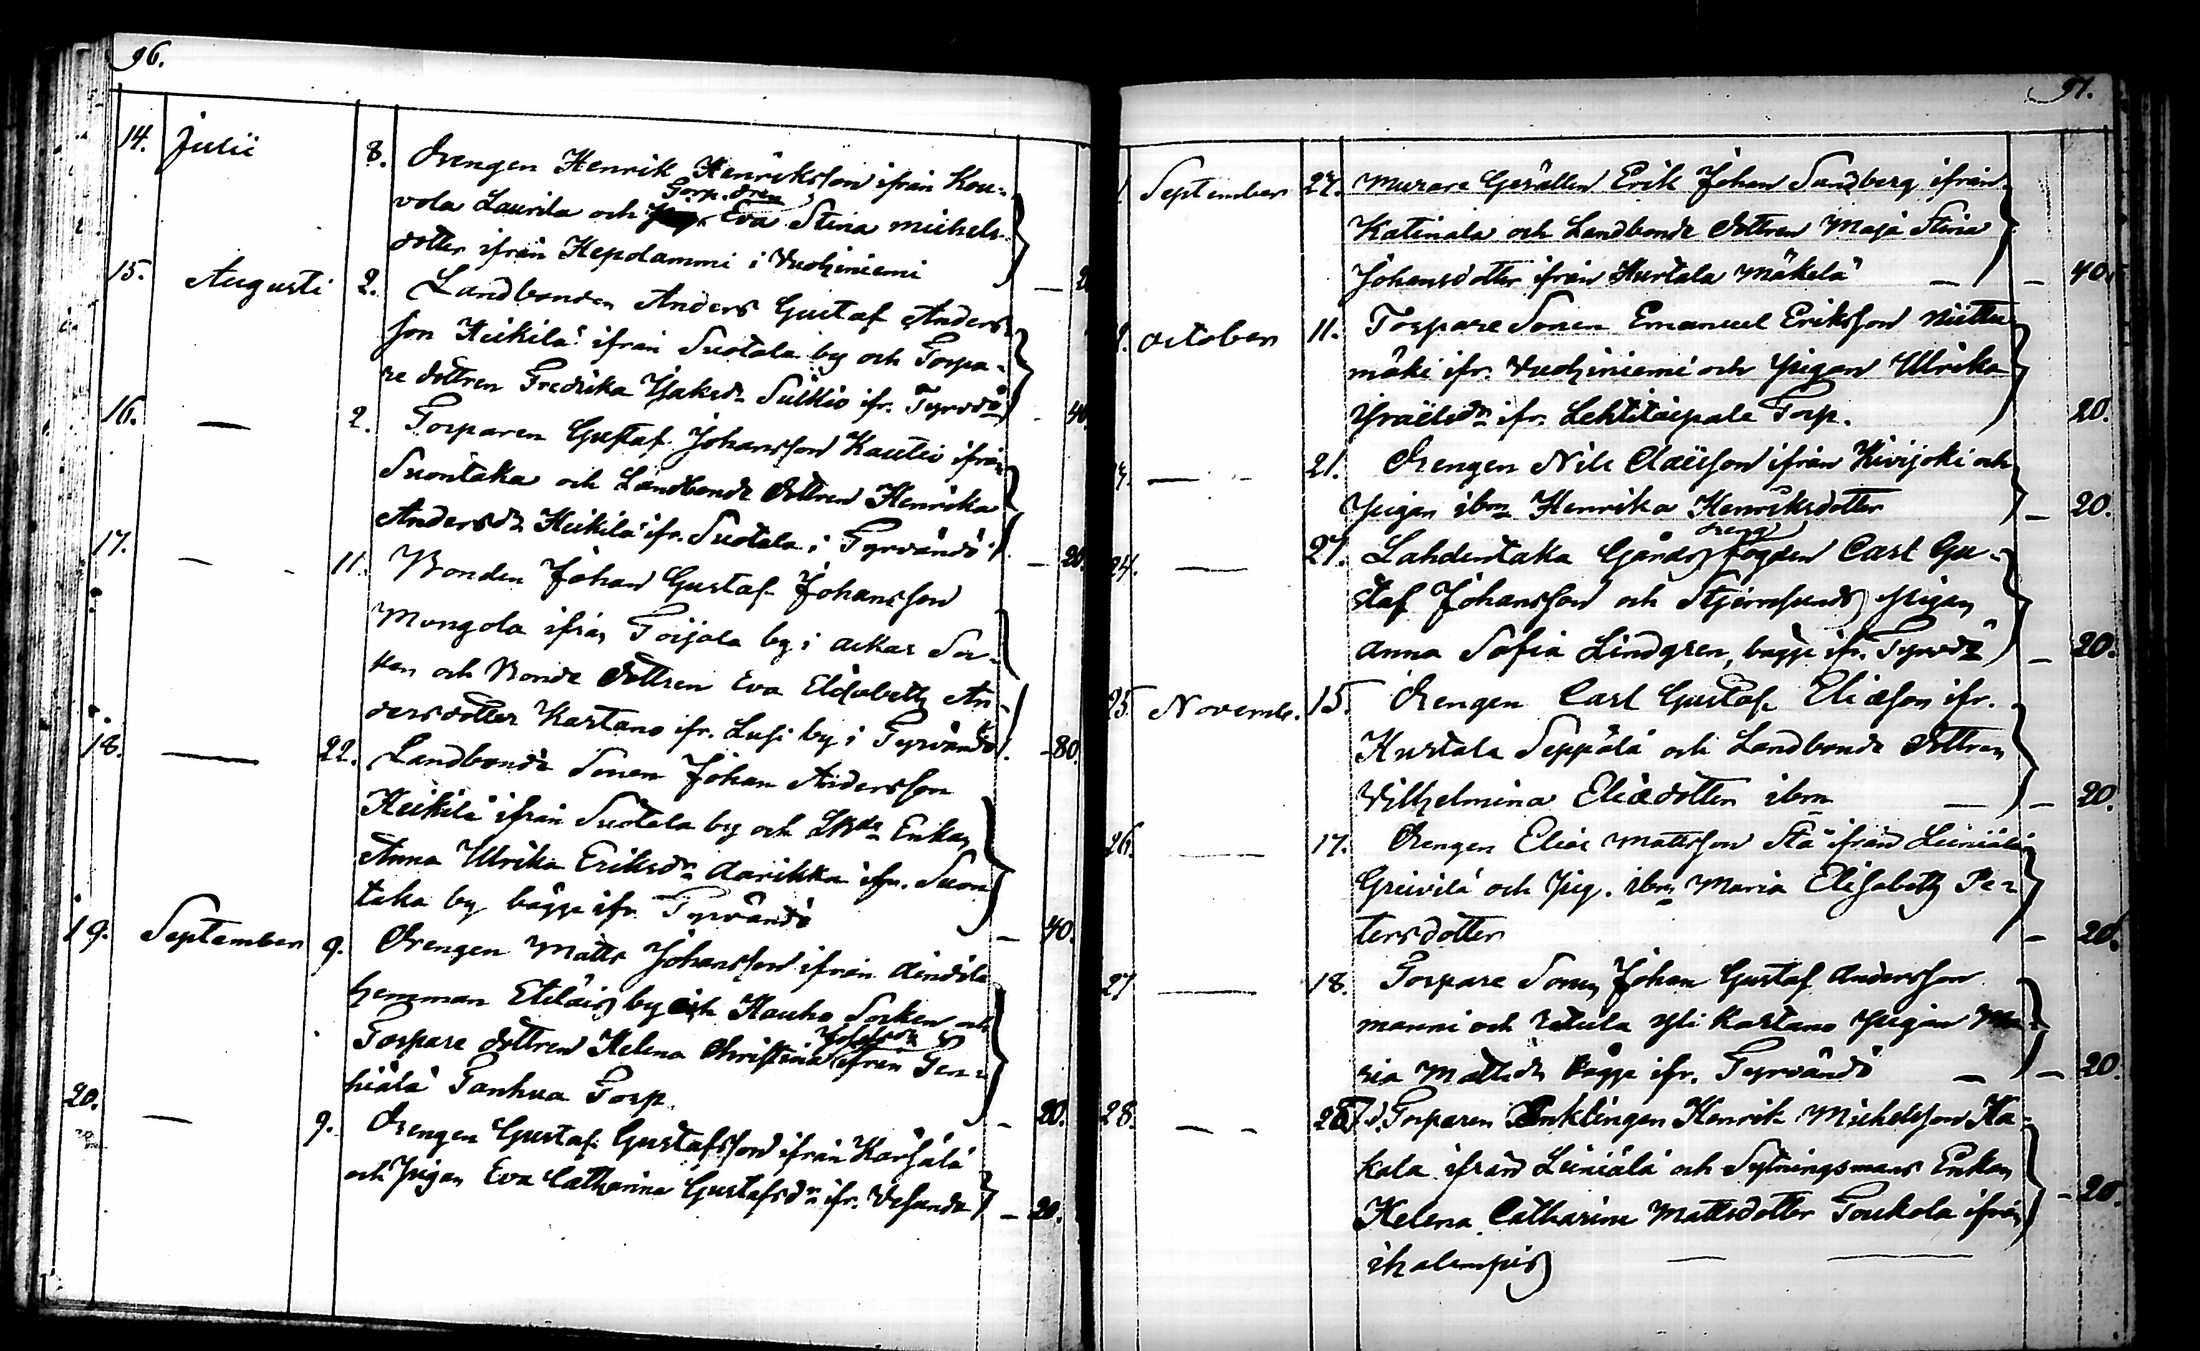 96.
14. Julii 8. Drengen Henrik Henriksson ifrån Kou-
Torp. dren
vola Laurila och Eva Stina Michels-
dotter ifrån Hepolammi i Vuohiniemi
15. Augusti 2. Landbonden Anders Gustaf Anders-
son Heikilä ifrån Suotala by och Torpa-
re dottren Fredrika Isaksdr Sulkio ifr. Tyrvdö - 40
16. — 2. Torparen Gustaf Johansson Kautio ifrån
Suontaka och Landbonde Dottren Henrika
Andersdr Heikilä ifr. Suotala i Tyrvändö. - 20.
17. — 11. Bonden Johan Gustaf Johansson
Mongola ifrån Toijala by i Ackas Soc-
ken och Bonde Dottren Eva Elisabeth An-
dersdotter Kartano ifr. Lusi by i Tyrvändö. - 80.
18. — 22. Landbonde Sonen Johan Andersson
Heikilä ifrån Suotala by och LBde Enkan
Anna Ulrika Eriksdr Aarikka ifr. Suon
taka by bägge ifr. Tyrvändö - 40.
19. September 9. Drengen Matts Johansson ifrån
hemman Eteläis by och Hauho Socken och
Torpare dottren Helena Christina ifrån Ten-
hiälä Tanhua Torp. - 20.
20. — 9. Drengen Gustaf Gustafsson ifrån Karsälä
och Pigan Eva Catharina Gustafsdr ifr. Vesunda - 20.
97.
September 27. Murare Gesällen Erik Johan Sandberg ifrån
Katinala och Landbonde Dottren Maja Stina
Johansdotter ifrån Hurtala Mäkelä — - 40.
October 11. Torpare Sonen Emanuel Eriksson Niittu-
mäki ifr. Vuohiniemi och Pigan Ulrika
Israelsdr ifr. Lehtitaipale Torp. 20.
— 21. Drengen Nils Claësson ifrån Kivijoki och
Pigan ibm Henrika Henriksdotter - 20.
dreng
24. — 27. Lahdentaka Gårds fogden Carl Gu-
staf Johansson och Stjernsunds Pigan
Anna Sofia Lindgren, bägge ifr. Tyrvdö - 20.
25. Novemb. 15. Drengen Carl Gustaf Eliæson ifr.
Hurtala Seppälä och Landbonde Dottren
Vilhelmina Eliædotter ibm — - 20.
26. — 17. Drengen Elias Mattsson Stå ifrån Leiniälä
Greivilä och Pig. ibm Maria Elisabeth Pe-
tersdotter - 20.
27 — 18. Torpare Sonen Johan Gustaf Andersson
Manni och Retula Yli Kartano Pigan Ma-
ria Mattsdr bägge ifr. Tyrvändö — - 20.
28. — 28. d. Torparen Enklingen Henrik Michelsson Ha-
kala ifrån Leiniälä och Sytningsmans Enkan
Helena Catharina Mattsdotter Toukola ifrån - 20.
Ihalempis — —